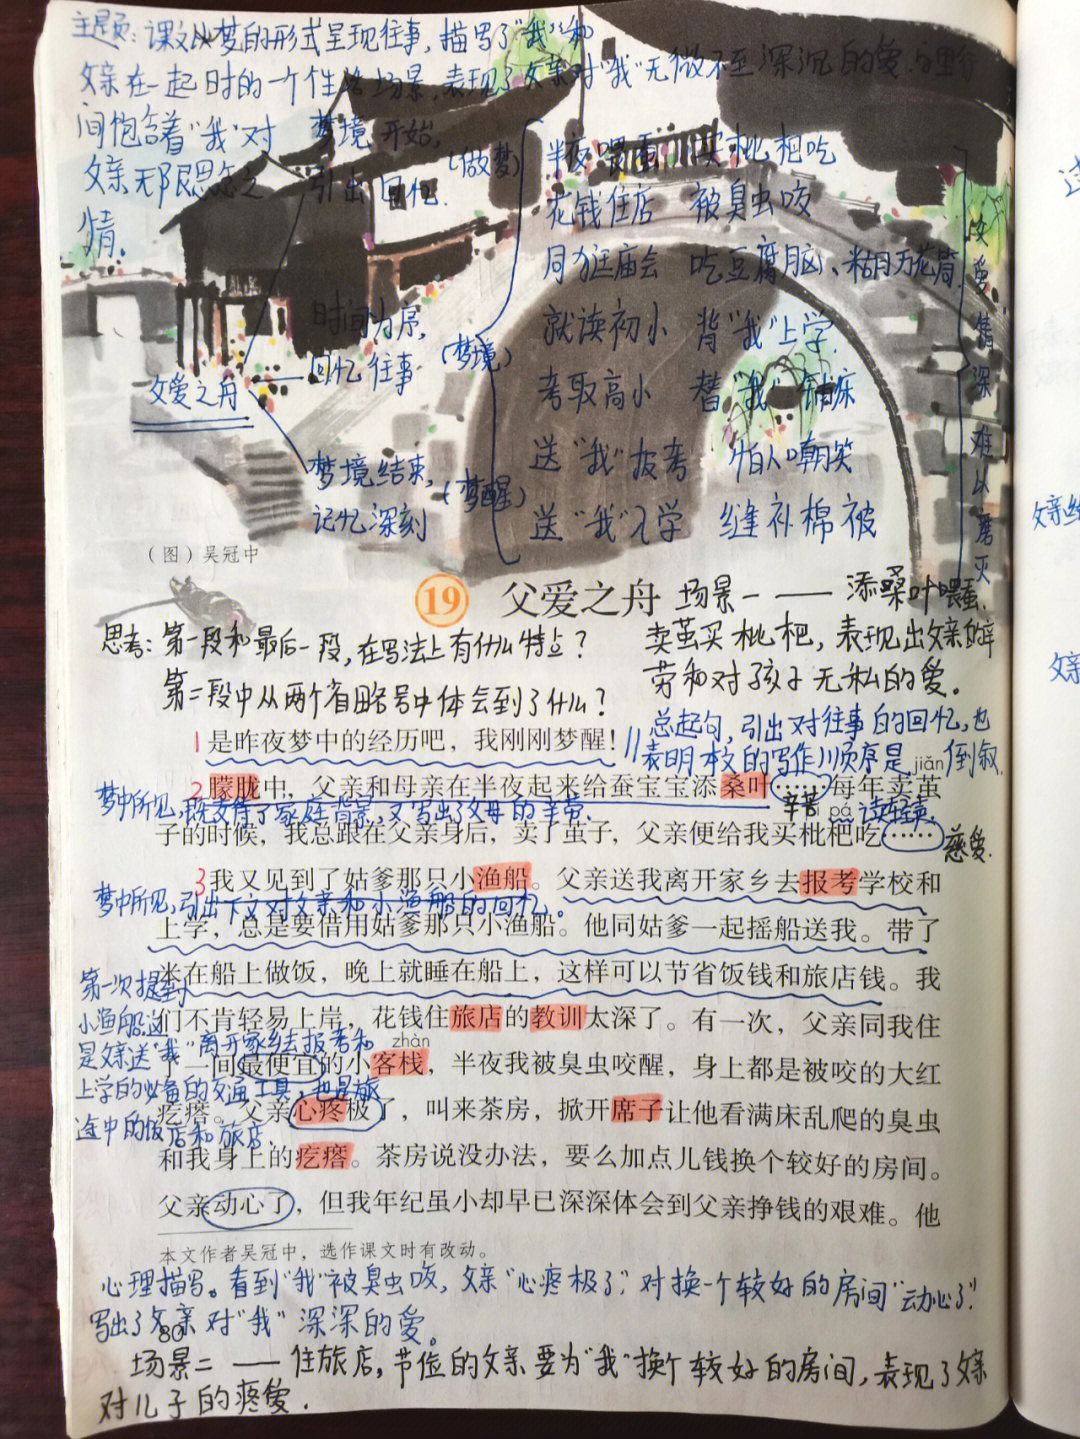 主题：课文以梦的形式呈现往事，描写了“我”和
父亲在一起时的一个个生活场景，表现了父亲对“我”无微不至深沉的爱，字里行
间饱含着“我”对
父亲无限思念之
情。
梦境开始，
引出回忆.
(做梦)
时间为序，
回忆往事
(梦境)
梦境结束，
记忆深刻
(梦醒)
父爱之舟
半夜喂蚕 买枇杷吃
花钱住店 被臭虫咬
同逛庙会 吃豆腐脑、糊万花筒
就读初小 背“我”上学.
考取高小 替“我”铺床
送“我”报考 怕人嘲笑
送“我”入学 缝补棉被
父爱情深难以磨灭
（图）吴冠中
19 父爱之舟
场景一 —— 添桑叶喂蚕.
卖茧买枇杷，表现出父亲的辛
劳和对孩子无私的爱。
思考：第一段和最后一段，在写法上有什么特点？
第二段中从两个省略号中体会到了什么？
总起句，引出对往事的回忆，也
表明本文的写作顺序是倒叙.
1是昨夜梦中的经历吧，我刚刚梦醒！
jiǎn
2朦胧中，父亲和母亲在半夜起来给蚕宝宝添桑叶……每年卖茧
梦中所见，既交待了家庭背景，又写出了父母的辛苦.
辛苦
pí pá
读轻声.
子的时候，我总跟在父亲身后，卖了茧子，父亲便给我买枇杷吃……
慈爱.
3我又见到了姑爹那只小渔船。父亲送我离开家乡去报考学校和
梦中所见，引出下文对父亲和小渔船的回忆。
上学，总是要借用姑爹那只小渔船。他同姑爹一起摇船送我。带了
米在船上做饭，晚上就睡在船上，这样可以节省饭钱和旅店钱。我
们不肯轻易上岸，花钱住旅店的教训太深了。有一次，父亲同我住
zhàn
了一间最便宜的小客栈，半夜我被臭虫咬醒，身上都是被咬的大红
疙瘩。父亲心疼极了，叫来茶房，掀开席子让他看满床乱爬的臭虫
和我身上的疙瘩。茶房说没办法，要么加点儿钱换个较好的房间。
父亲动心了，但我年纪虽小却早已深深体会到父亲挣钱的艰难。他
第一次提到
小渔船，这
是父亲送“我”离开家乡去报考和
上学的必备的交通工具，也是旅
途中的饭店和旅店.
本文作者吴冠中，选作课文时有改动。
心理描写。看到“我”被臭虫咬，父亲“心疼极了”，对换一个较好的房间“动心了”.
写出了父亲对“我”深深的爱。
80
场景二 —— 住旅店，节俭的父亲要为“我”换个较好的房间，表现了父亲
对儿子的疼爱.
父亲
父亲